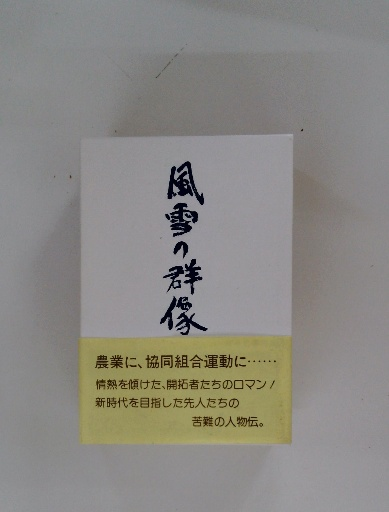 風雪の群像
農業に、協同組合運動に……
情熱を傾けた、開拓者たちのロマン!
新時代を目指した先人たちの
苦難の人物伝。